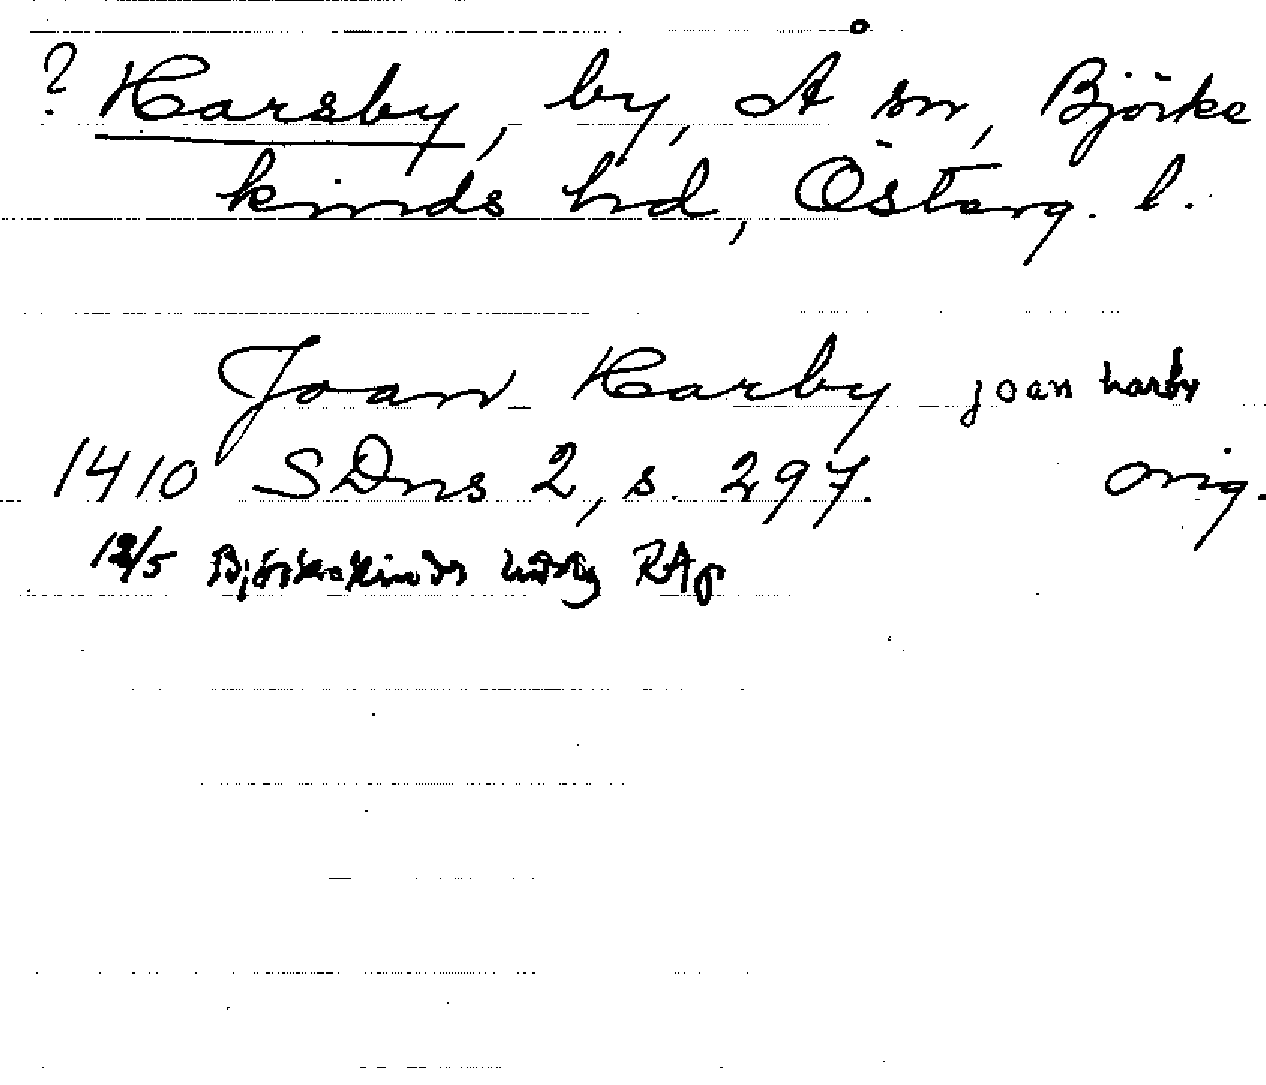 ? Harsby, by, Å sn, Björke
kinds hd, Österg. l.
Joan Harby joan harby
1410 SDns 2, s. 297. orig.
12/5 Björkekinds hdsting RAp